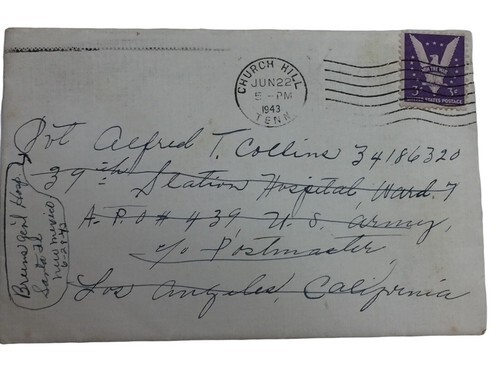 CHURCH HILL
JUN 22
5-PM
1943
TENN
WIN THE WAR
3¢
UNITED STATES POSTAGE
Pvt Alfred T. Collins 34186320
39th Station Hospital Ward. 7
A.P.O # 439 U.S. Army,
c/o Postmaster,
Los Angeles, California
Bruns Gen'l Hosp
Santa Fe
New Mexico